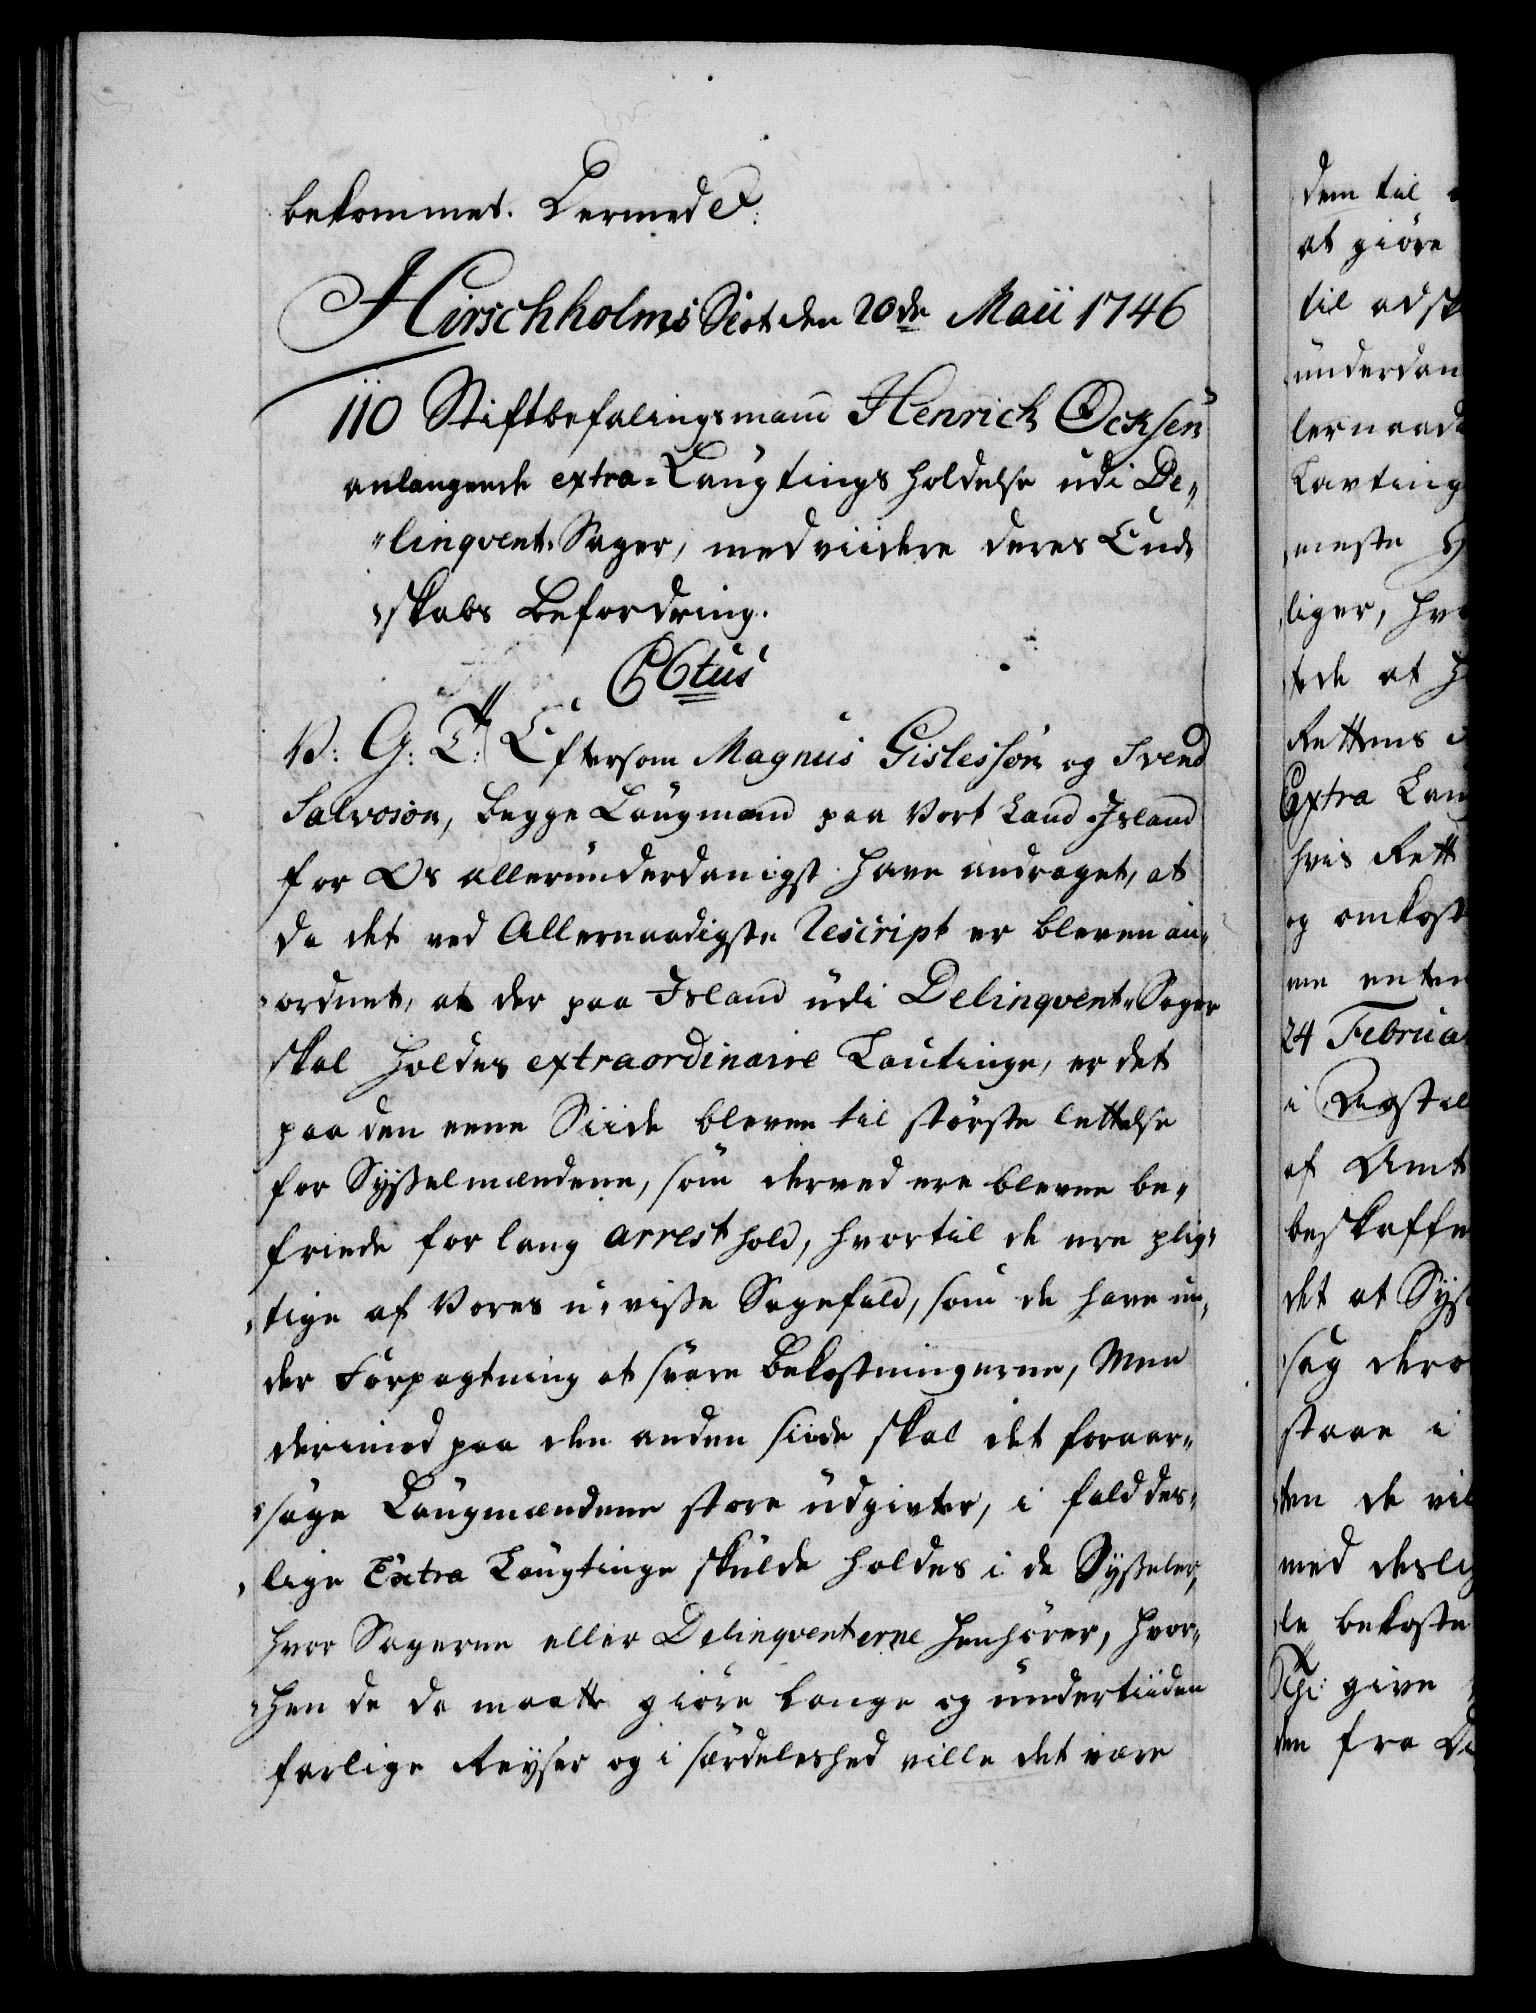 bekommet. Dermed &:
Hirschholms Slot den 20de Maii 1746
110 Stiftbefalingsmand Henrich Ocksen
anlangende extra-Laugtings holdelse udi De„
„linqvent-Sager, med viidere deres End„
„skabs Befordring.
C6tus
V: G: T: Eftersom Magnus Gislessøn og Svend
Salvoson, begge Laugmænd paa Vort Land Island
for Os allerunderdanigst have andraget, at
da det ved Allernaadigste Rescript er bleven an„
„ordnet, at der paa Island udi Delinqvent-Sager
skal holdes extraordinaire Lautinge, er det
paa den eene Siide bleven til største lettelse
for Sysselmændene, som derved ere blevne be„
friede for lang arrest hold, hvortil de ere plig„
„tige af Vores u-visse Sagefald, som de have un„
der Forpagtning at svare Bekostningerne, Men
derimod paa den anden siide skal det foraar„
„sage Laugmændene store udgivter, i fald des„
„lige Extra Laugtinge skulde holdes i de Sysseler,
hvor Sagerne eller Delinqventerne henhører, hvor„
„hen de da maatte giøre lange og undertiiden
farlige Reyser og i særdeleshed ville det være
dem til
at giøre
til adsk
underdan
lernaad
Lavting
meste
liger, hv
stede at
Rettens
Extra Lau
hvis Rett
og omkost
me enten
24 Februa
i
af Amt
beskaffe
det at Sys
sag dero
staae i
ten de vil
med desli
le bekoste
give
den fra